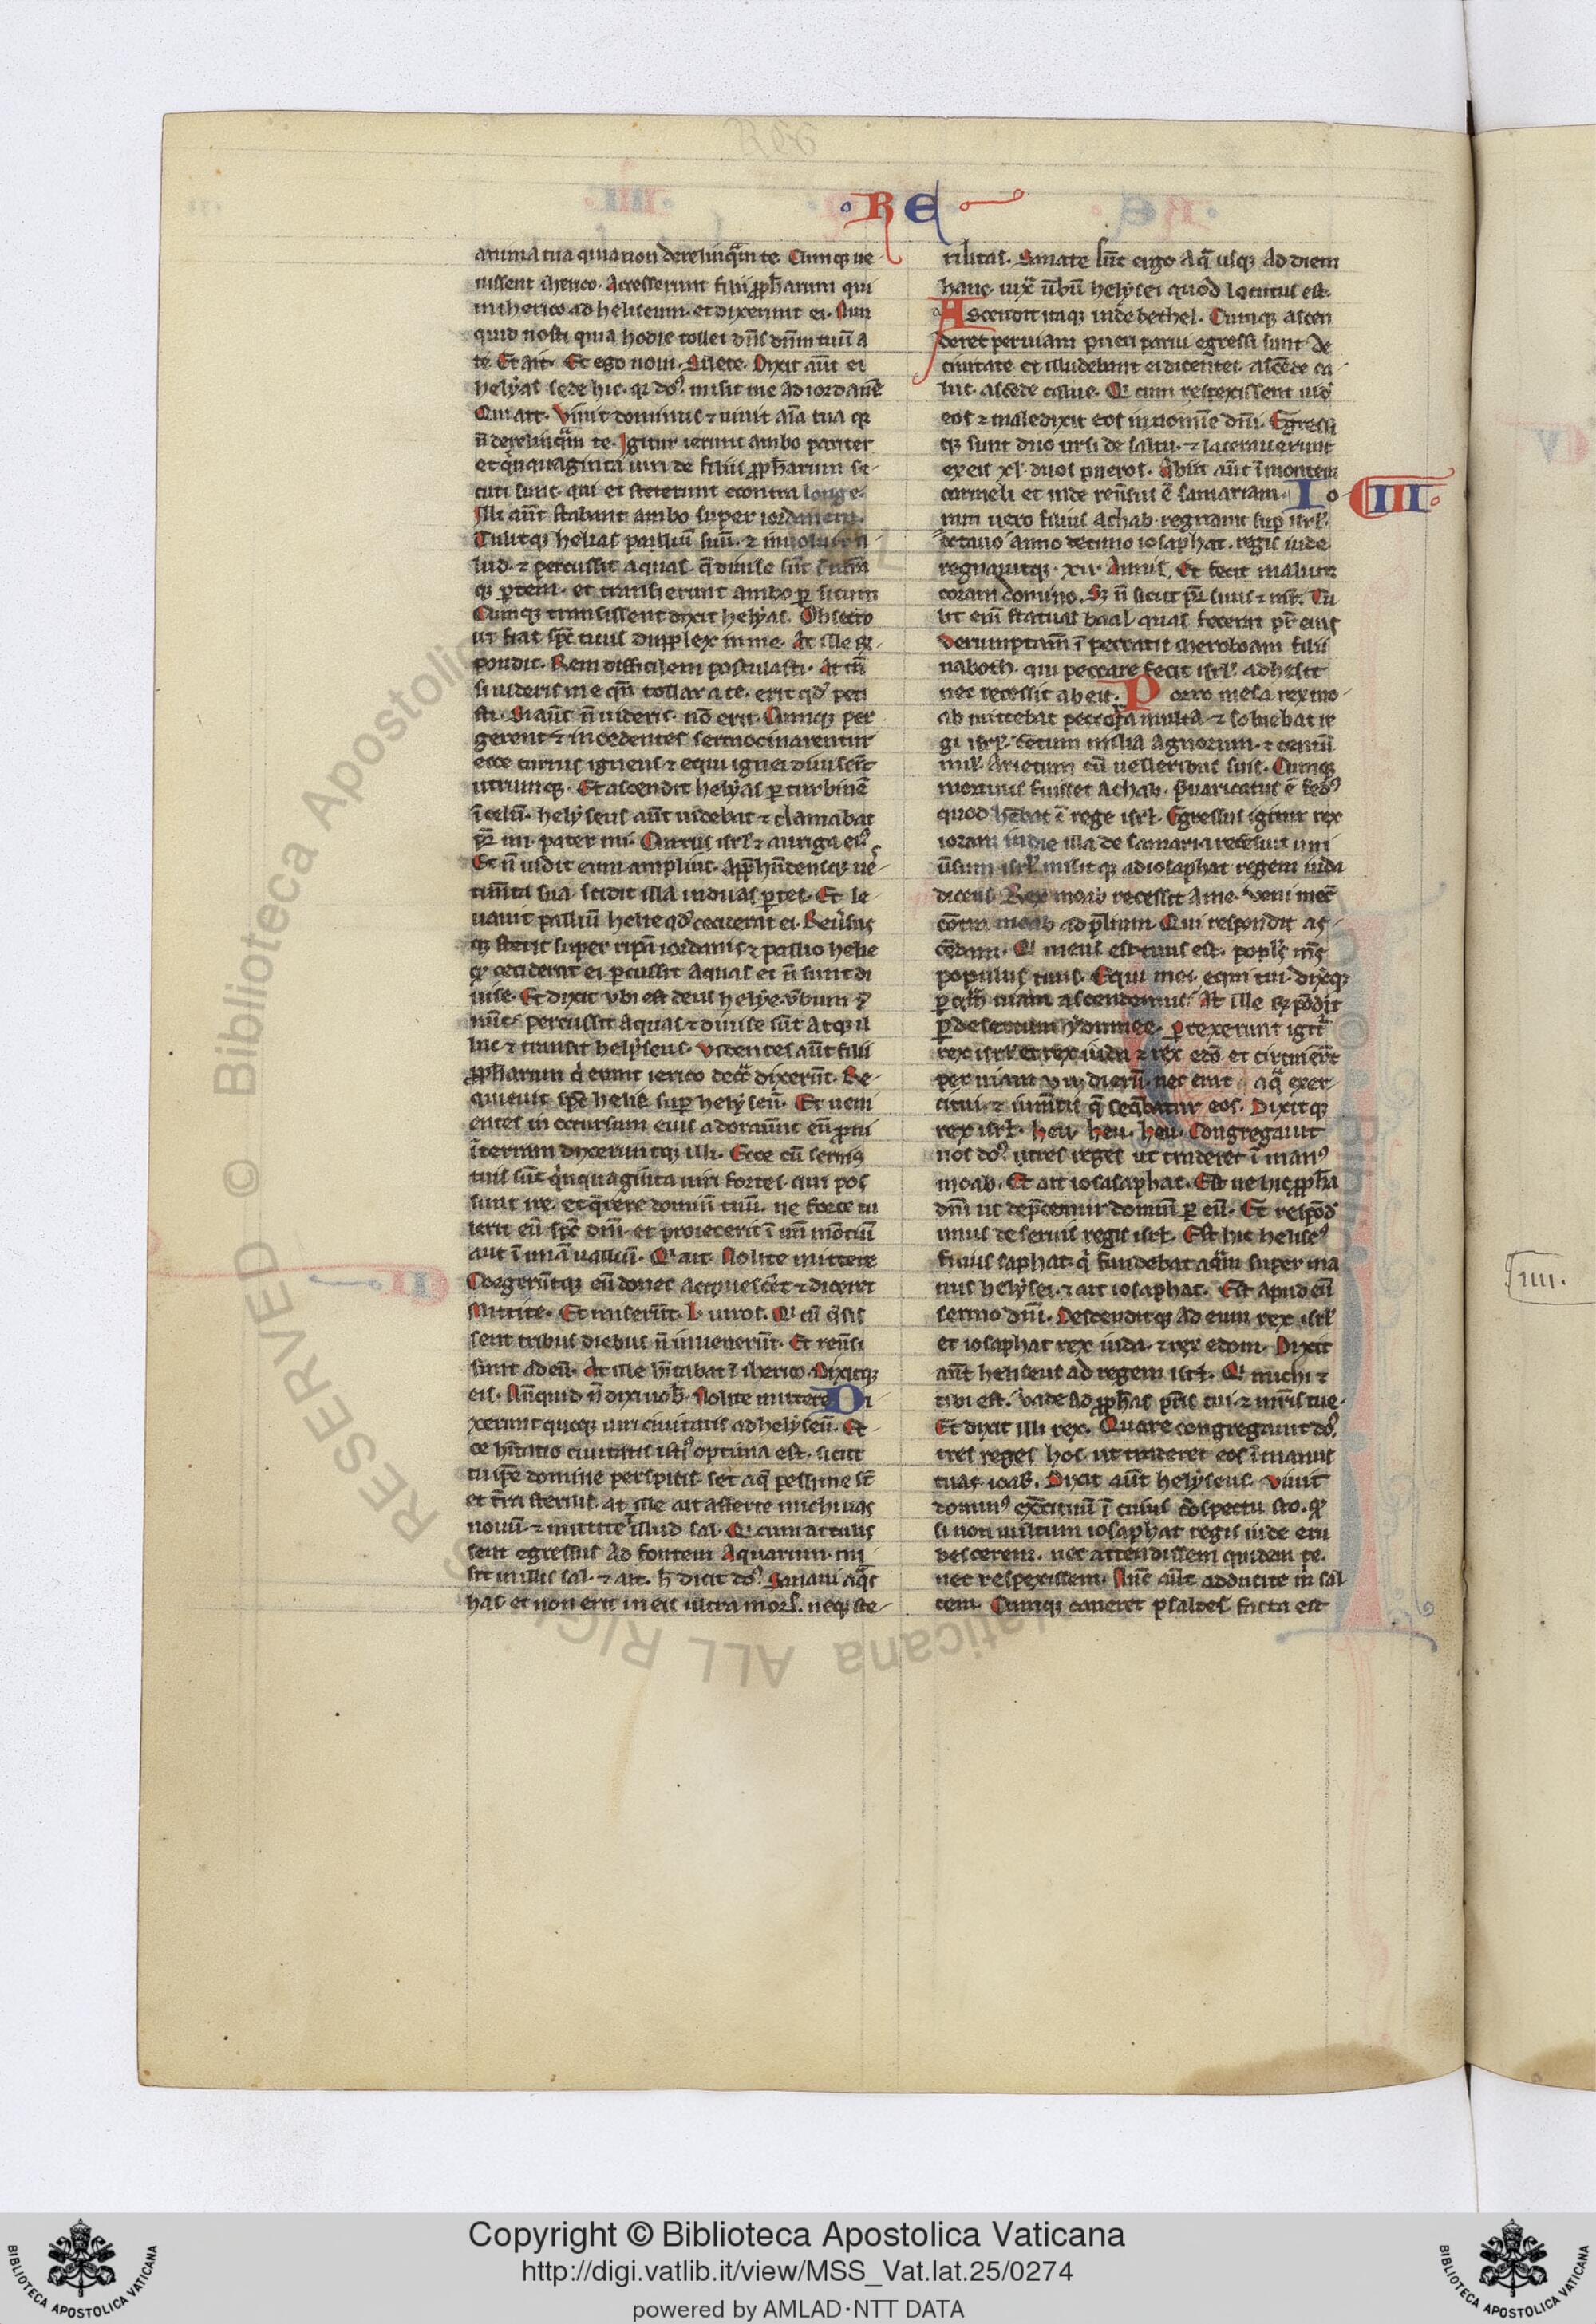 RE
anima tua quia non derelinq̄m te. Cumqꝫ ue-
nissent iherico. Accesserunt filii ꝓph̄arum qui
in iherico ad heliseum. et dixerunt ei. Nun
quid nosti quia hodie tollet dn̄s dn̄m tuū a
te Et ait. Et ego noui. Silete. Dixit aūt ei
helyas sede hic. qr do᷒ misit me ad iordanē
Qui ait. Viuit dominus ⁊ uiuit aīa tua qr
n̄ derelinq̄m te. Igitur ierunt ambo pariter
et q̇nquaginta uiri de filiis ꝓph̄arum se-
cuti sunt. qui et steterunt econtra longe.
Illi aūt stabant ambo super iordanem.
Tulitqꝫ helias palliū suū. ⁊ inuoluit il
lud. ⁊ percussit aquas. q̄ diuise sūt ī utm̄
qꝫ ꝑtem. et transierunt ambo ꝑ siccum
Cumqꝫ transissent dixit helyas. Obsecro
ut fiat sp̄c tuus dupplex in me. At ille rn̄-
pondit. Rem difficilem postulasti. At tn̄
si uideris me qn̄ tollar a te. erit qd̓ peti
sti. Si aūt n̄ uideris. nō erit. Cumqꝫ per
gerent ⁊ incedentes sermocinarentur
ecce currus igneus ⁊ equi ignei diuiserūt
utrumqꝫ. Et ascendit helyas ꝑ turbinē
ī celū. helyseus aūt uidebat ⁊ clamabat
pr̄ mi. pater mi. Currus isrł ⁊ auriga ei᷒
Et n̄ uidit eum amplius. Appreh̄denscqꝫ ue-
stim̄ta sua. scidit illa in duas ꝑtes. Et le-
uauit palliū helie qd̓ ceciderat ei. Reuersus
qꝫ stetit super ripā iordanis ⁊ pallio helie
qd̓ ceciderat ei ꝑcussit aquas et n̄ sunt di
uise. Et dixit vbi est deus helye. etiam
nūc. percussit aquas ⁊ diuise sūt atqꝫ il
luc ⁊ transiit helyseus. Videntes aūt filii
ꝓph̄arum q̇ erant ierico decō dixerūt. Re-
quieuit sp̄c helie suꝑ helyseū. Et ueni
entes in occursum eius adorauūt eū proni
ī terram dixeruntqꝫ illi. Ecce cū seruis
tuis sūt q̇nquaginta uiri fortes. qui pos
sunt ire. et q̄rere dominū tuū. ne forte tu
lerit eū sp̄c dn̄i. et proiecerit ī un̄ mōtiū
aut ī unā ualliū. Q̇ ait. Nolite mittere
Coegerūtqꝫ eū donec acquiescēt ⁊ diceret
Mittite. Et miserūt. L. uiros. Q̇ cū q̄sis
sent tribus diebus n̄ inuenerūt. Et reūsi
sunt ad eū. At ille hitabat ī iherico. Dixitqꝫ
eis. Nūquid n̄ dixi uob̄. Nolite mittere. Di
xerunt quoqꝫ uiri ciuitatis ad helyseū. Ec-
ce h̄itatio ciuitatis isti᷒ optima est. sicut
tu ip̄e domine perspicis. set aq̄ pessime st̄
et tr̄a sterilis. at ille ait afferte michi uas
nouū. ⁊ mittite ī illud sal. Q̇ cum attulis
sent egressus ad fontem aquarum. mi
sit in illis sal. ⁊ ait. h̄ dicit do᷒. Sanaui aq̄s
has. et non erit in eis ultra mors. neqꝫ ste-
rilitas. Sanate sūt ergo aq̄ usqꝫ ad diem
hanc. iux̄ u̅bū helysei quod locutus est.
Ascendit itaqꝫ inde bethel. Cumqꝫ ascen
deret per uiam pueri parui egressi sunt de
ciuitate et illudebant ei dicentes. ascēde ca
lue. ascēde calue. Q̇ cum respexissent uid̓
eos ⁊ maledixit eos in nomīe dn̄i. Egressi
qꝫ sunt duo ursi de saltu. ⁊ lacerauerunt
ex eis xł. duos pueros. Abiit aūt ī montem
carmeli et inde reūsus ē samariam. Io
III
ram uero filius achab. regnauit suꝑ isrł.
octauo anno decimo iosaphat. regis iude.
regnauitqꝫ. xii. Annis. Et fecit malum
coram domino. Sꝫ n̄ sicut pr̄ suus ⁊ mr̄. Tu
lit eni statuas baal. quas fecerat pr̄ eius
Verumptam̄ ī peccatis iheroboam filii
naboth. qui peccare fecit isrł. adhesit
nec recessit ab eis. Porro mesa rex mo-
ab nutriebat peccora multa. ⁊ soluebat re
gi isrł. centum milia agnorum. ⁊ centū
mił. arietum cū uelleribus suis. Cumqꝫ
mortuus fuisset achab. p̄uaricatus ē fed᷒
quod h̄ebat ē rege isrł. Egressus igitur rex
ioram in die illa de samaria recēsuit uni
u̅sum isrł. misitqꝫ ad iosaphat regem iuda
dicens. Rex moab recessit a me. Veni mec̄
cōtra moab ad p̄lium. Qui respondit as-
cēdam. Q̇ meus est. tuus est. popls m̄s
populus tuus. Equi mei. equi tui. dixitqꝫ
ꝑ q̄m uiam ascendemus. At ille rn̄podit
ꝑ desertum ydumee. ꝑrexerunt igit᷑
rex isrł et rex iuda ⁊ rex edō. et circuierūt
per uiam vii. dierū. nec erat aq̄ exer-
citui. ⁊ iumētis q̄ seq̄batur eos. Dixitqꝫ
rex isrł. heu. heu. heu. Congregauit
nos do᷒. tres reges ut traderet ī man᷒
moab. Et ait iosasaphat. Est ne hic ꝓph̄a
dn̄i ut dep̄cemur dominū ꝑ eū. Et respōd̓
unus de seruis regis isrł. Est hic helise᷒
filius saphat. q̇ fundebat aq̄m super ma
nus helysei. ⁊ ait iosaphat. Est apud eū
sermo dn̄i. Descenditqꝫ ad eum rex isrł
et iosaphat rex iuda. ⁊ rex edom. Dixit
aūt heliseus ad regem isrł. Q̇ michi ⁊
tibi est. Vade ad ꝓph̄as pr̄is tui. ⁊ mr̄is tue.
Et dixit illi rex. Quare congregauit do᷒.
tres reges hos. ut traderet eos ī manus
tuas ioab. Dixit aūt helyseus. Viuit
domin᷒ exc̄ituū ī cuius cōspectu sto. qd̓
si non uultum iosaphat regis iude eru
bescerem. nec attendissem quidem te.
nec respexissem. Nūc aūt adducite m̄ sal
tem. Cumqꝫ caneret psaltes. facta est
IIII.
RESERVED © Biblioteca Apostolica Vaticana ALL RIGHTS
Copyright © Biblioteca Apostolica Vaticana
http://digi.vatlib.it/view/MSS_Vat.lat.25/0274
powered by AMLAD·NTT DATA
BIBLIOTECA APOSTOLICA VATICANA
BIBLIOTECA APOSTOLICA VATICANA